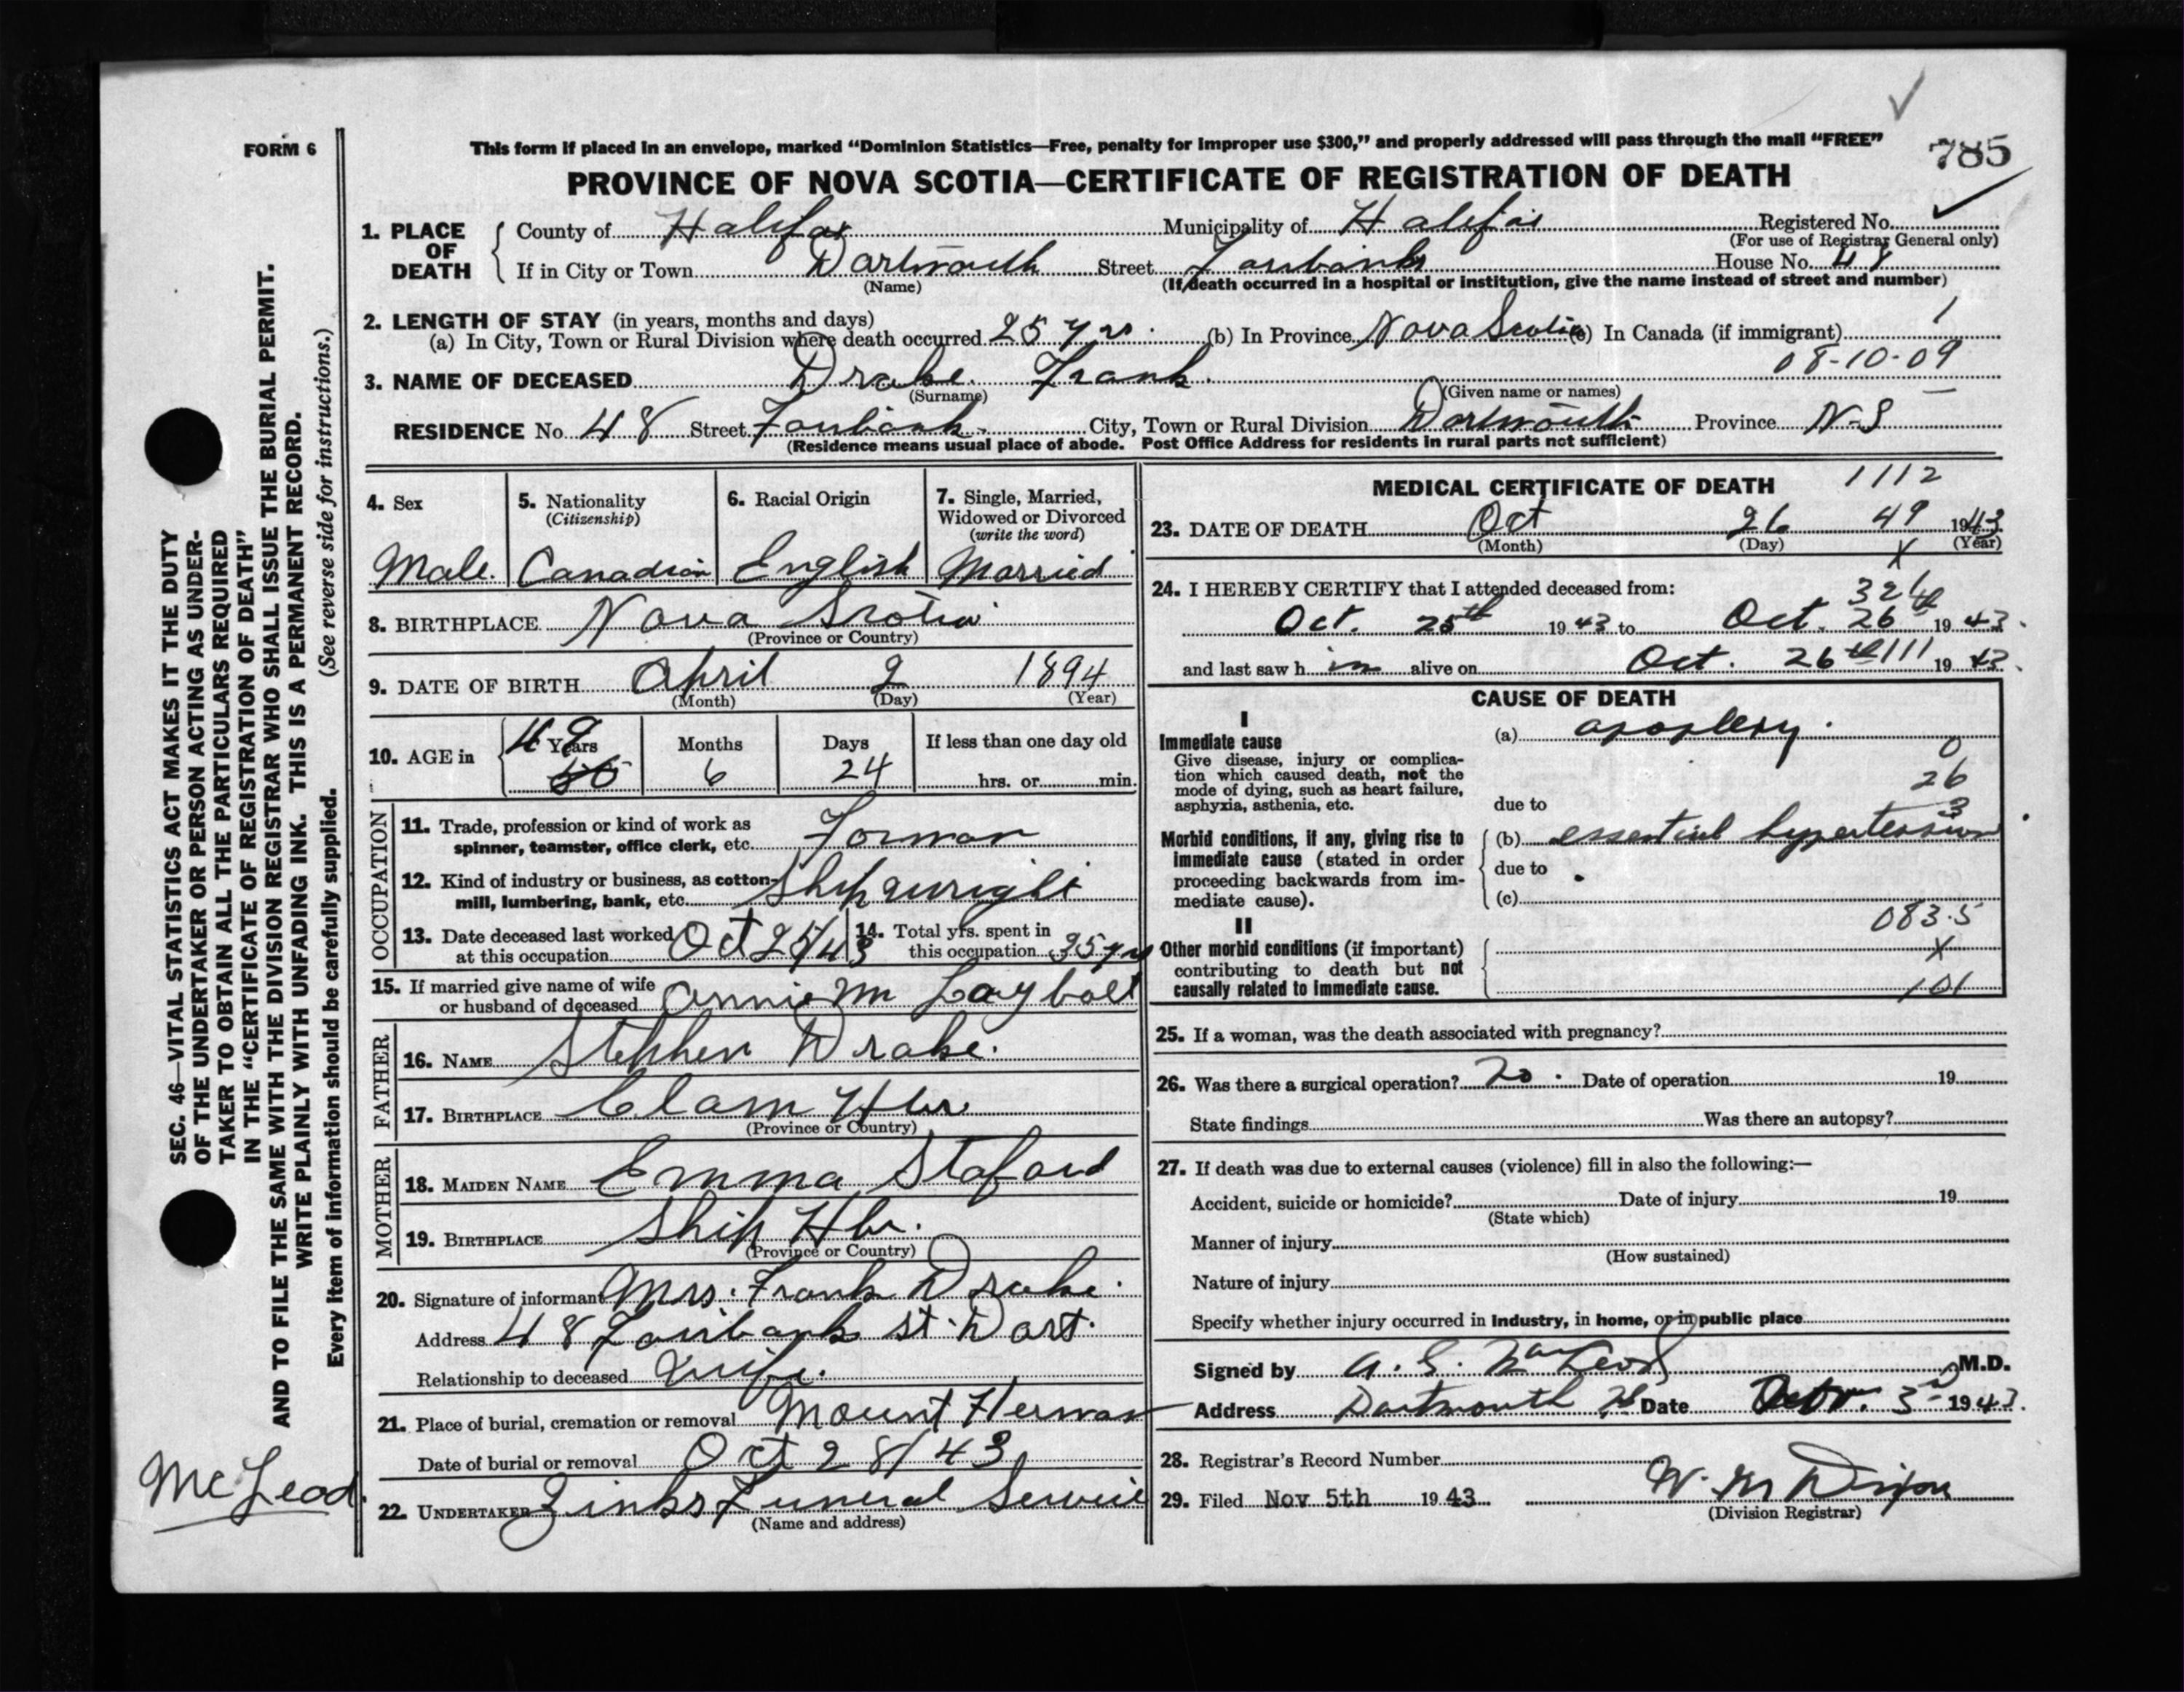 FORM 6
This form if placed in an envelope, marked “Dominion Statistics—Free, penalty for improper use $300,” and properly addressed will pass through the mail “FREE”
785
PROVINCE OF NOVA SCOTIA—CERTIFICATE OF REGISTRATION OF DEATH
1. PLACE OF DEATH
County of Halifax Municipality of Halifax Registered No.
(For use of Registrar General only)
If in City or Town Dartmouth Street Fairbanks House No. 48
(Name) (If death occurred in a hospital or institution, give the name instead of street and number)
2. LENGTH OF STAY (in years, months and days) 1
(a) In City, Town or Rural Division where death occurred 25 yrs. (b) In Province Nova Scotia (c) In Canada (if immigrant)
08-10-09
3. NAME OF DECEASED Drake. Frank.
(Surname) (Given name or names)
RESIDENCE No. 48 Street Fairbank. City, Town or Rural Division Dartmouth Province N-S
(Residence means usual place of abode. Post Office Address for residents in rural parts not sufficient)
4. Sex
Male.
5. Nationality
(Citizenship)
Canadian
6. Racial Origin
English
7. Single, Married,
Widowed or Divorced
(write the word)
Married
8. BIRTHPLACE Nova Scotia
(Province or Country)
9. DATE OF BIRTH April 2 1894
(Month) (Day) (Year)
10. AGE in 49 Years Months Days If less than one day old
6 24 hrs. or min.
OCCUPATION
11. Trade, profession or kind of work as
spinner, teamster, office clerk, etc. Forman
12. Kind of industry or business, as cotton-
mill, lumbering, bank, etc. Shipwright
13. Date deceased last worked
at this occupation Oct 25/43
14. Total yrs. spent in
this occupation 25 yrs
15. If married give name of wife
or husband of deceased Annie M Laybolt
FATHER
16. NAME Stephen Drake.
17. BIRTHPLACE Clam Hbr
(Province or Country)
MOTHER
18. MAIDEN NAME Emma Staford
19. BIRTHPLACE Ship Hbr.
(Province or Country)
20. Signature of informant Mrs. Frank Drake.
Address 48 Fairbank St. Dart.
Relationship to deceased Wife.
21. Place of burial, cremation or removal Mount Herman
Date of burial or removal Oct 28/43
22. UNDERTAKER Zinks Funeral Service
(Name and address)
MEDICAL CERTIFICATE OF DEATH 1112
23. DATE OF DEATH Oct 26 49 1943
(Month) (Day) X (Year)
24. I HEREBY CERTIFY that I attended deceased from:
Oct. 25th 1943 to Oct. 26th 1943.
and last saw him alive on Oct. 26th 111 1943.
CAUSE OF DEATH
I
Immediate cause
Give disease, injury or complica-
tion which caused death, not the
mode of dying, such as heart failure,
asphyxia, asthenia, etc.
(a) apoplexy.
0
26
3
due to
Morbid conditions, if any, giving rise to
immediate cause (stated in order
proceeding backwards from im-
mediate cause).
(b) essential hypertension.
due to
(c)
083.5
II
Other morbid conditions (if important)
contributing to death but not
causally related to immediate cause.
X
101
25. If a woman, was the death associated with pregnancy?
26. Was there a surgical operation? No. Date of operation 19
State findings Was there an autopsy?
27. If death was due to external causes (violence) fill in also the following:—
Accident, suicide or homicide? Date of injury 19
(State which)
Manner of injury
(How sustained)
Nature of injury
Specify whether injury occurred in industry, in home, or in public place
Signed by A. G. MacLeod M.D.
Address Dartmouth Date 3rd 1943.
28. Registrar's Record Number
29. Filed Nov 5th 1943 W. M Dixon
(Division Registrar)
SEC. 46—VITAL STATISTICS ACT MAKES IT THE DUTY
OF THE UNDERTAKER OR PERSON ACTING AS UNDER-
TAKER TO OBTAIN ALL THE PARTICULARS REQUIRED
IN THE “CERTIFICATE OF REGISTRATION OF DEATH”
AND TO FILE THE SAME WITH THE DIVISION REGISTRAR WHO SHALL ISSUE THE BURIAL PERMIT.
WRITE PLAINLY WITH UNFADING INK. THIS IS A PERMANENT RECORD.
Every item of information should be carefully supplied. (See reverse side for instructions.)
McLeod.